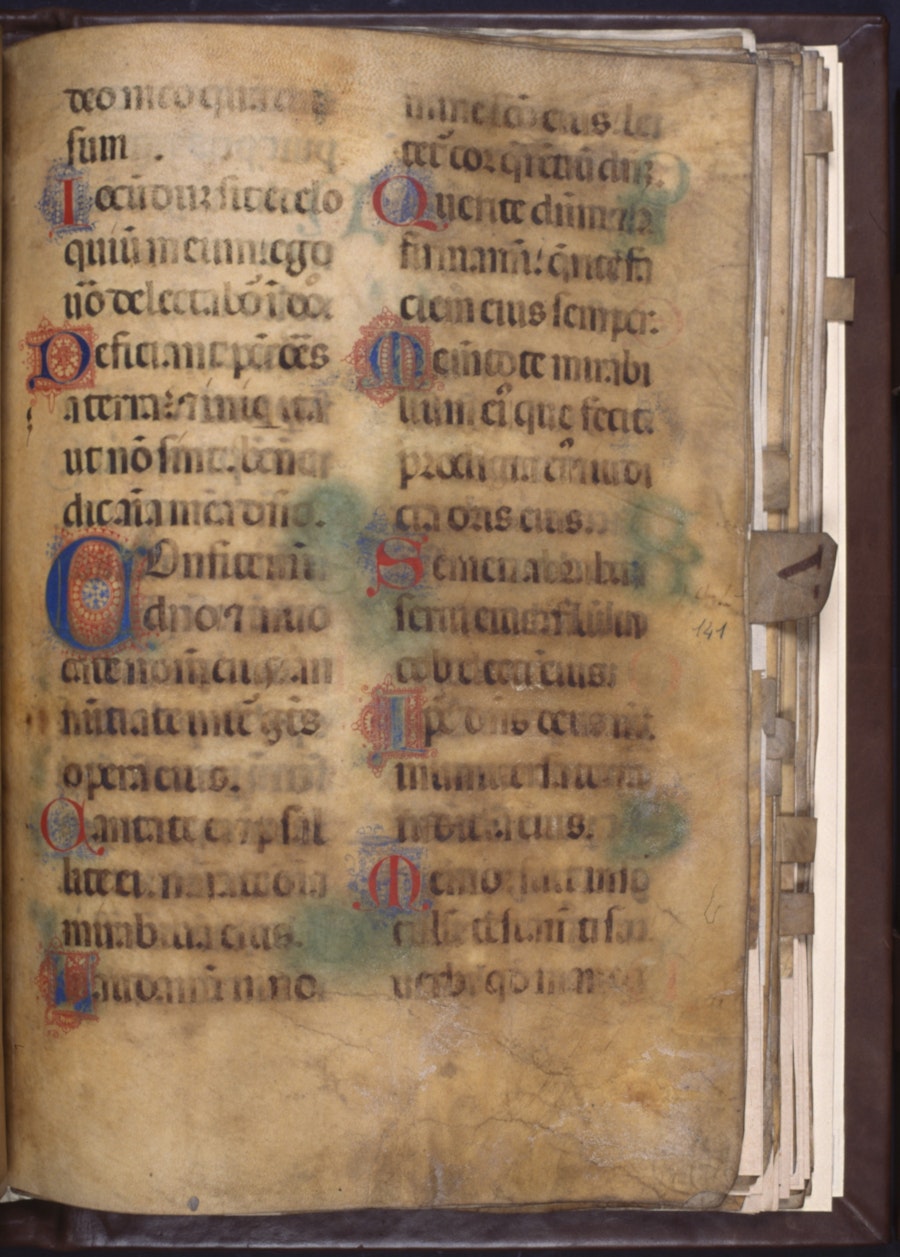 deo meo
sum.
Iocūdum sit ei elo
quiū meum: ego
ūo delectabor ī dño
Deficiant pc̄tores
a terra: ⁊ iniq̄ ita
ut nō sint: bēn
dic aīa mea dño.
Confitemini
dño ⁊ inuo
cate nom̄ eius: an
nūtiate int̄ gētes
opera eius.
Cantate ei ⁊ psal
lite ei: narrate oīa
mirabilia eius.
Laudamini in no
mine sc̄o eius: le
tet̄ cor q̄rentiū dn̄m.
Querite dn̄m ⁊
firmam̄: q̄rite fa
ciem eius semper.
Mem̄tote mirabi
lium eī que fecit:
prodigia eī ⁊ iudi
cia oris eius.
Semen abraham
serui eius: filii ia
cob electi eius.
Ipē dn̄s deus nr̄:
in uniuersa terra
iudicia eius.
Memor fuit in se
culū testam̄ti sui:
uerbi qd
141